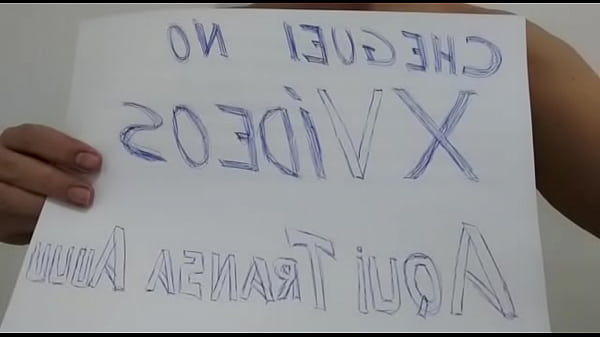 CHEGUEI NO
XVÍDEOS
AQUI TRANSA AUUUU